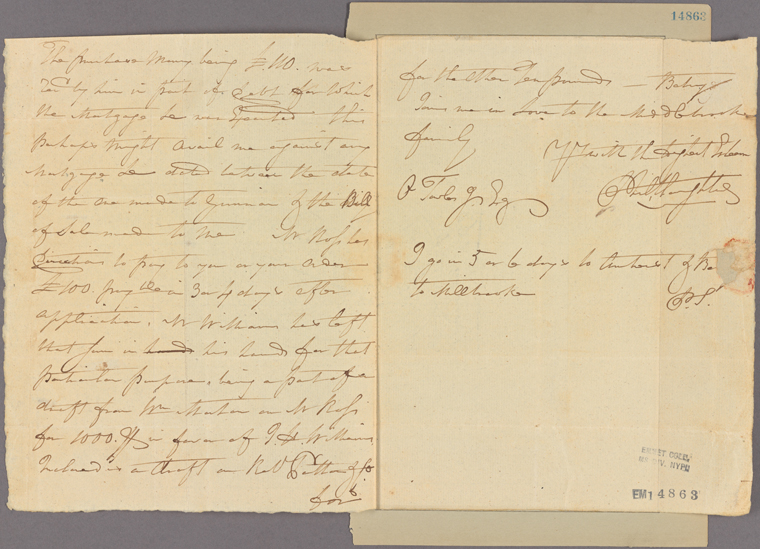 14863
The purchase Money being £110. was
by him in part of a Debt for which
the Mortgage &c was Executed this
Perhaps might avail me against any
Mortgage &c dated between the date
of the One made to Gunnion & the Bill
of Sale made to me Mr Ross has
Directions to pay to you or your Order
£100. payble in 3 or 4 days after
application, Mr Williams has left
that sum in hands his hands for that
Particular purpose, being a part of a
draft from Wm on Mr Ross
for 1000.Drs in favor of Williams
Inclosed is a draft on Robt Patton
for
for the other Ten pounds — Betsy
Joins me in Love to the Middlebrooke
family Yrs with the highest Esteem
O Towles Jr Esq
I go in 5 or 6 days to Amherst &
to Millbrooke
P.S.
EMMET COLL.
MS. DIV. NYPL
EM14863